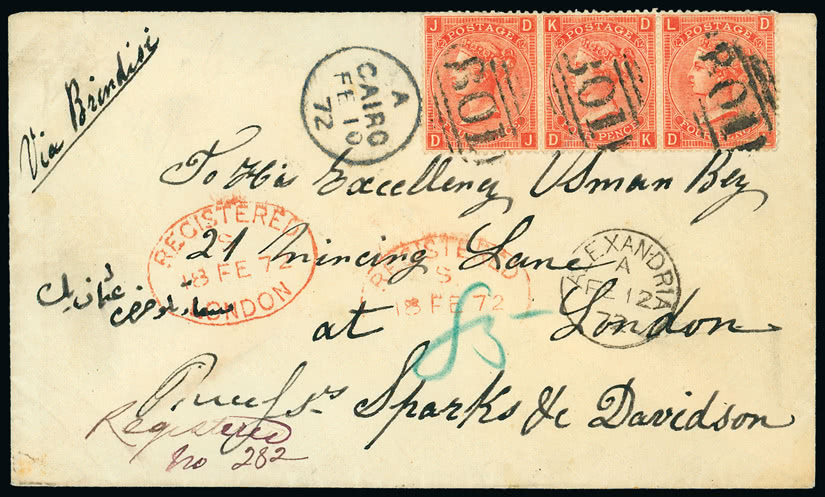 Via Brindisi
A
CAIRO
FE 10
72
J D
POSTAGE
D J
K D
POSTAGE
FOUR PENCE
D K
L D
POSTAGE
D
B01
B01
B01
To His Excellency Usman Bey
REGISTERED
S
18 FE 72
LONDON
21 Mincing Lane
REGISTERED
S
18 FE 72
ALEXANDRIA
A
FE 12
72
عثمان بك
at London
85
Sparks & Davidson
Registered
No 282